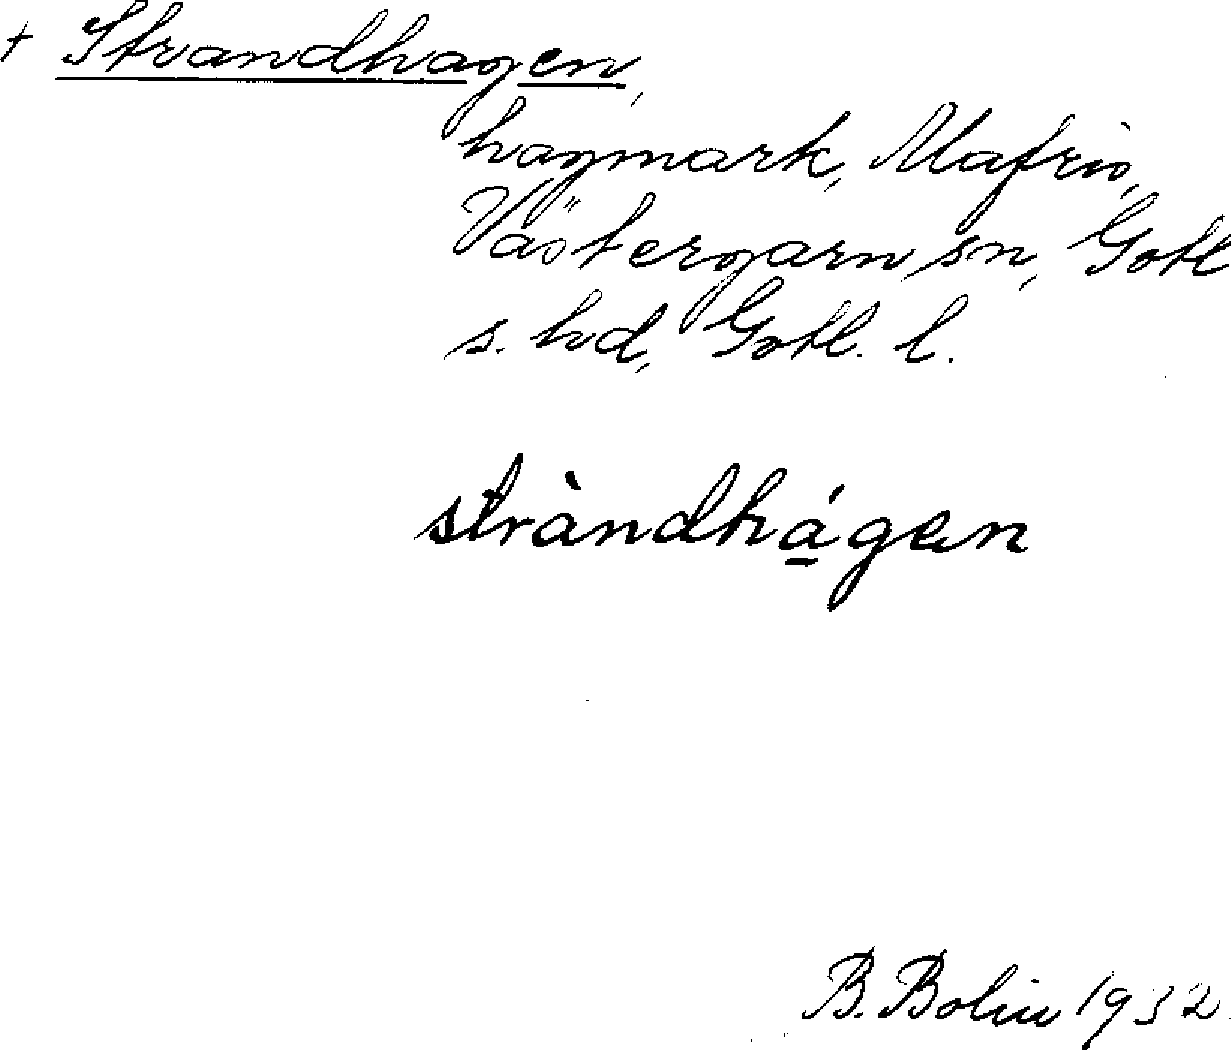 + Strandhagen,
hagmark, Mafrids,
Västergarn sn, Gotl
s. hd, Gotl. l.
stràndhá̱gen
B. Bolin 1932